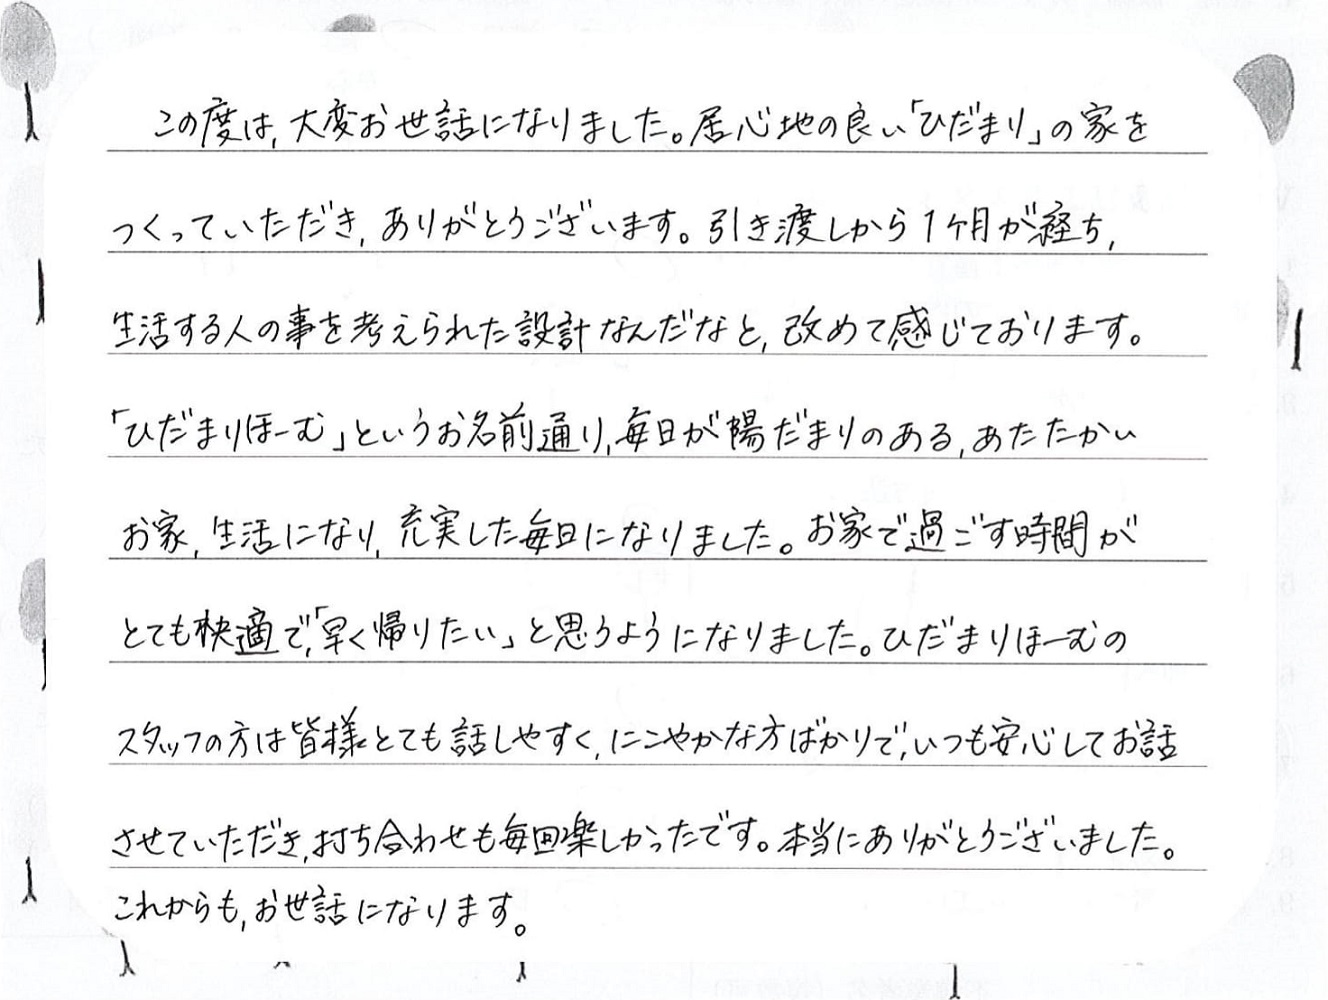 この度は,大変お世話になりました。居心地の良い「ひだまり」の家を
つくっていただき,ありがとうございます。引き渡しから1ヶ月が経ち,
生活する人の事を考えられた設計なんだなと,改めて感じております。
「ひだまりほーむ」というお名前通り,毎日が陽だまりのある,あたたかい
お家,生活になり,充実した毎日になりました。お家で過ごす時間が
とても快適で,「早く帰りたい」と思うようになりました。ひだまりほーむの
スタッフの方は皆様とても話しやすく,にこやかな方ばかりで,いつも安心してお話
させていただき,打ち合わせも毎回楽しかったです。本当にありがとうございました。
これからも,お世話になります。